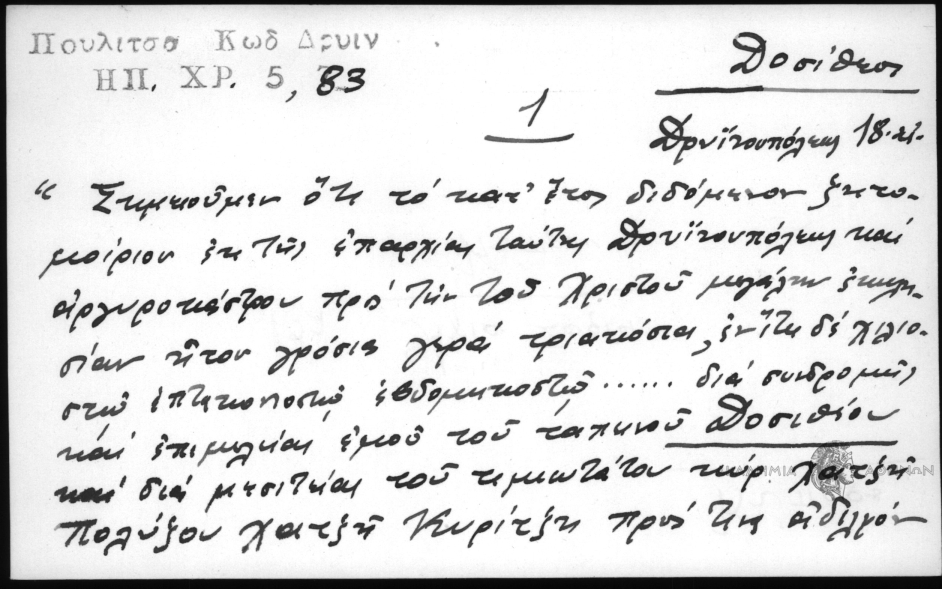 Πουλιτσα Κωδ Δρυιν
ΗΠ. ΧΡ. 5, 83
Δοσίθεος
1
Δρυϊνουπόλεως 18. αι.
“ Σημειοῦμεν ὅτι τό κατ' ἔτος διδόμενον ξητο-
μοίριον ἐκ τῆς ἐπαρχίας ταύτης Δρυϊνουπόλεως καί
ἀργυροκάστρου πρός τήν τοῦ Χριστοῦ μεγάλην ἐκκλη-
σίαν ἦτον γρόσια γερά τριακόσια, ἐν ἔτει δέ χιλιο-
στῷ ἑπτακοσιοστῷ ἑβδομηκοστῷ ...... διά συνδρομῆς
καί ἐπιμελείας ἐμοῦ τοῦ ταπεινοῦ Δοσιθέου
καί διά μεσιτείας τοῦ τιμιωτάτου κύρ χατζῆ
Πολύζου χατζῆ Κυρίτζη πρός τήν ἀδελφόν
ΑΚΑΔΗΜΙΑ ΑΘΗΝΩΝ